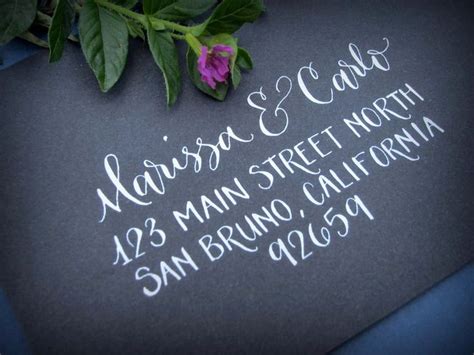 Marissa & Carlo
123 MAIN STREET NORTH
SAN BRUNO, CALIFORNIA
92659